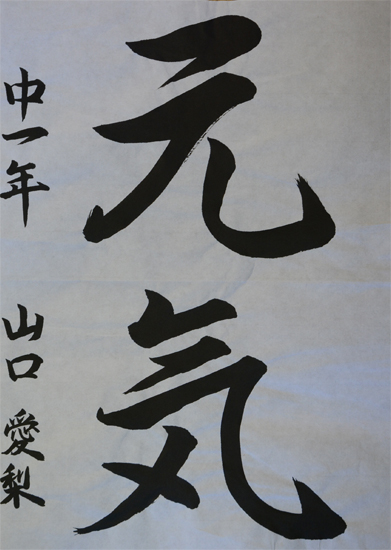 元気
中一年 山口 愛梨